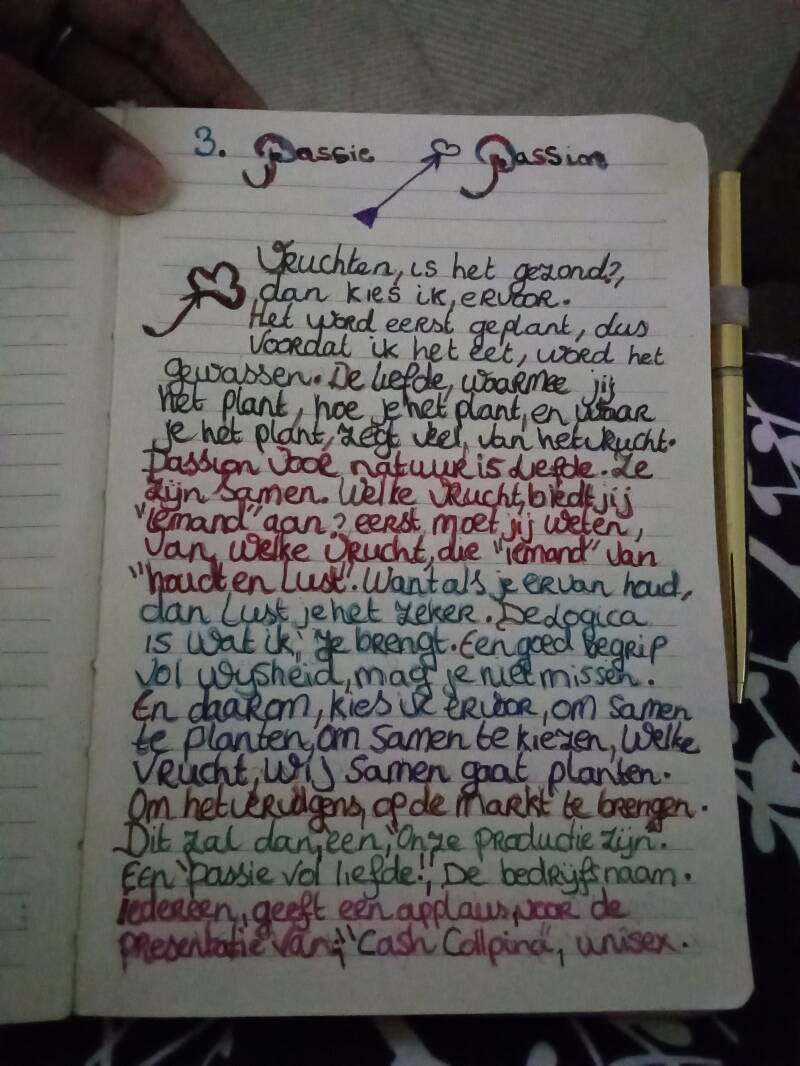 3. Passie Passion
Vruchten, is het gezond?,
dan kies ik, ervoor.
Het word eerst geplant, dus
voordat ik het eet, word het
gewassen. De liefde, waarmee jij
het plant, hoe je het plant, en waar
je het plant, zegt veel, van het vrucht.
Passion voor natuur is liefde. Ze
zijn samen. Welke vrucht, biedt jij
"iemand" aan? eerst moet jij weten,
van, welke vrucht, die "iemand" van
"houdt en lust". Want als je ervan houd,
dan lust je het zeker. De logica
is wat ik, je brengt. Een goed begrip
vol wijsheid, mag je niet missen.
En daarom, kies ik ervoor, om samen
te planten, om samen te kiezen, welke
vrucht, wij samen gaat planten.
Om het vervolgens, op de markt te brengen.
Dit zal dan, een, "Onze productie zijn.
Een "passie vol liefde!", De bedrijfsnaam.
iedereen, geeft een applaus, voor de
presentatie van; "Cash Collpina", unisex.